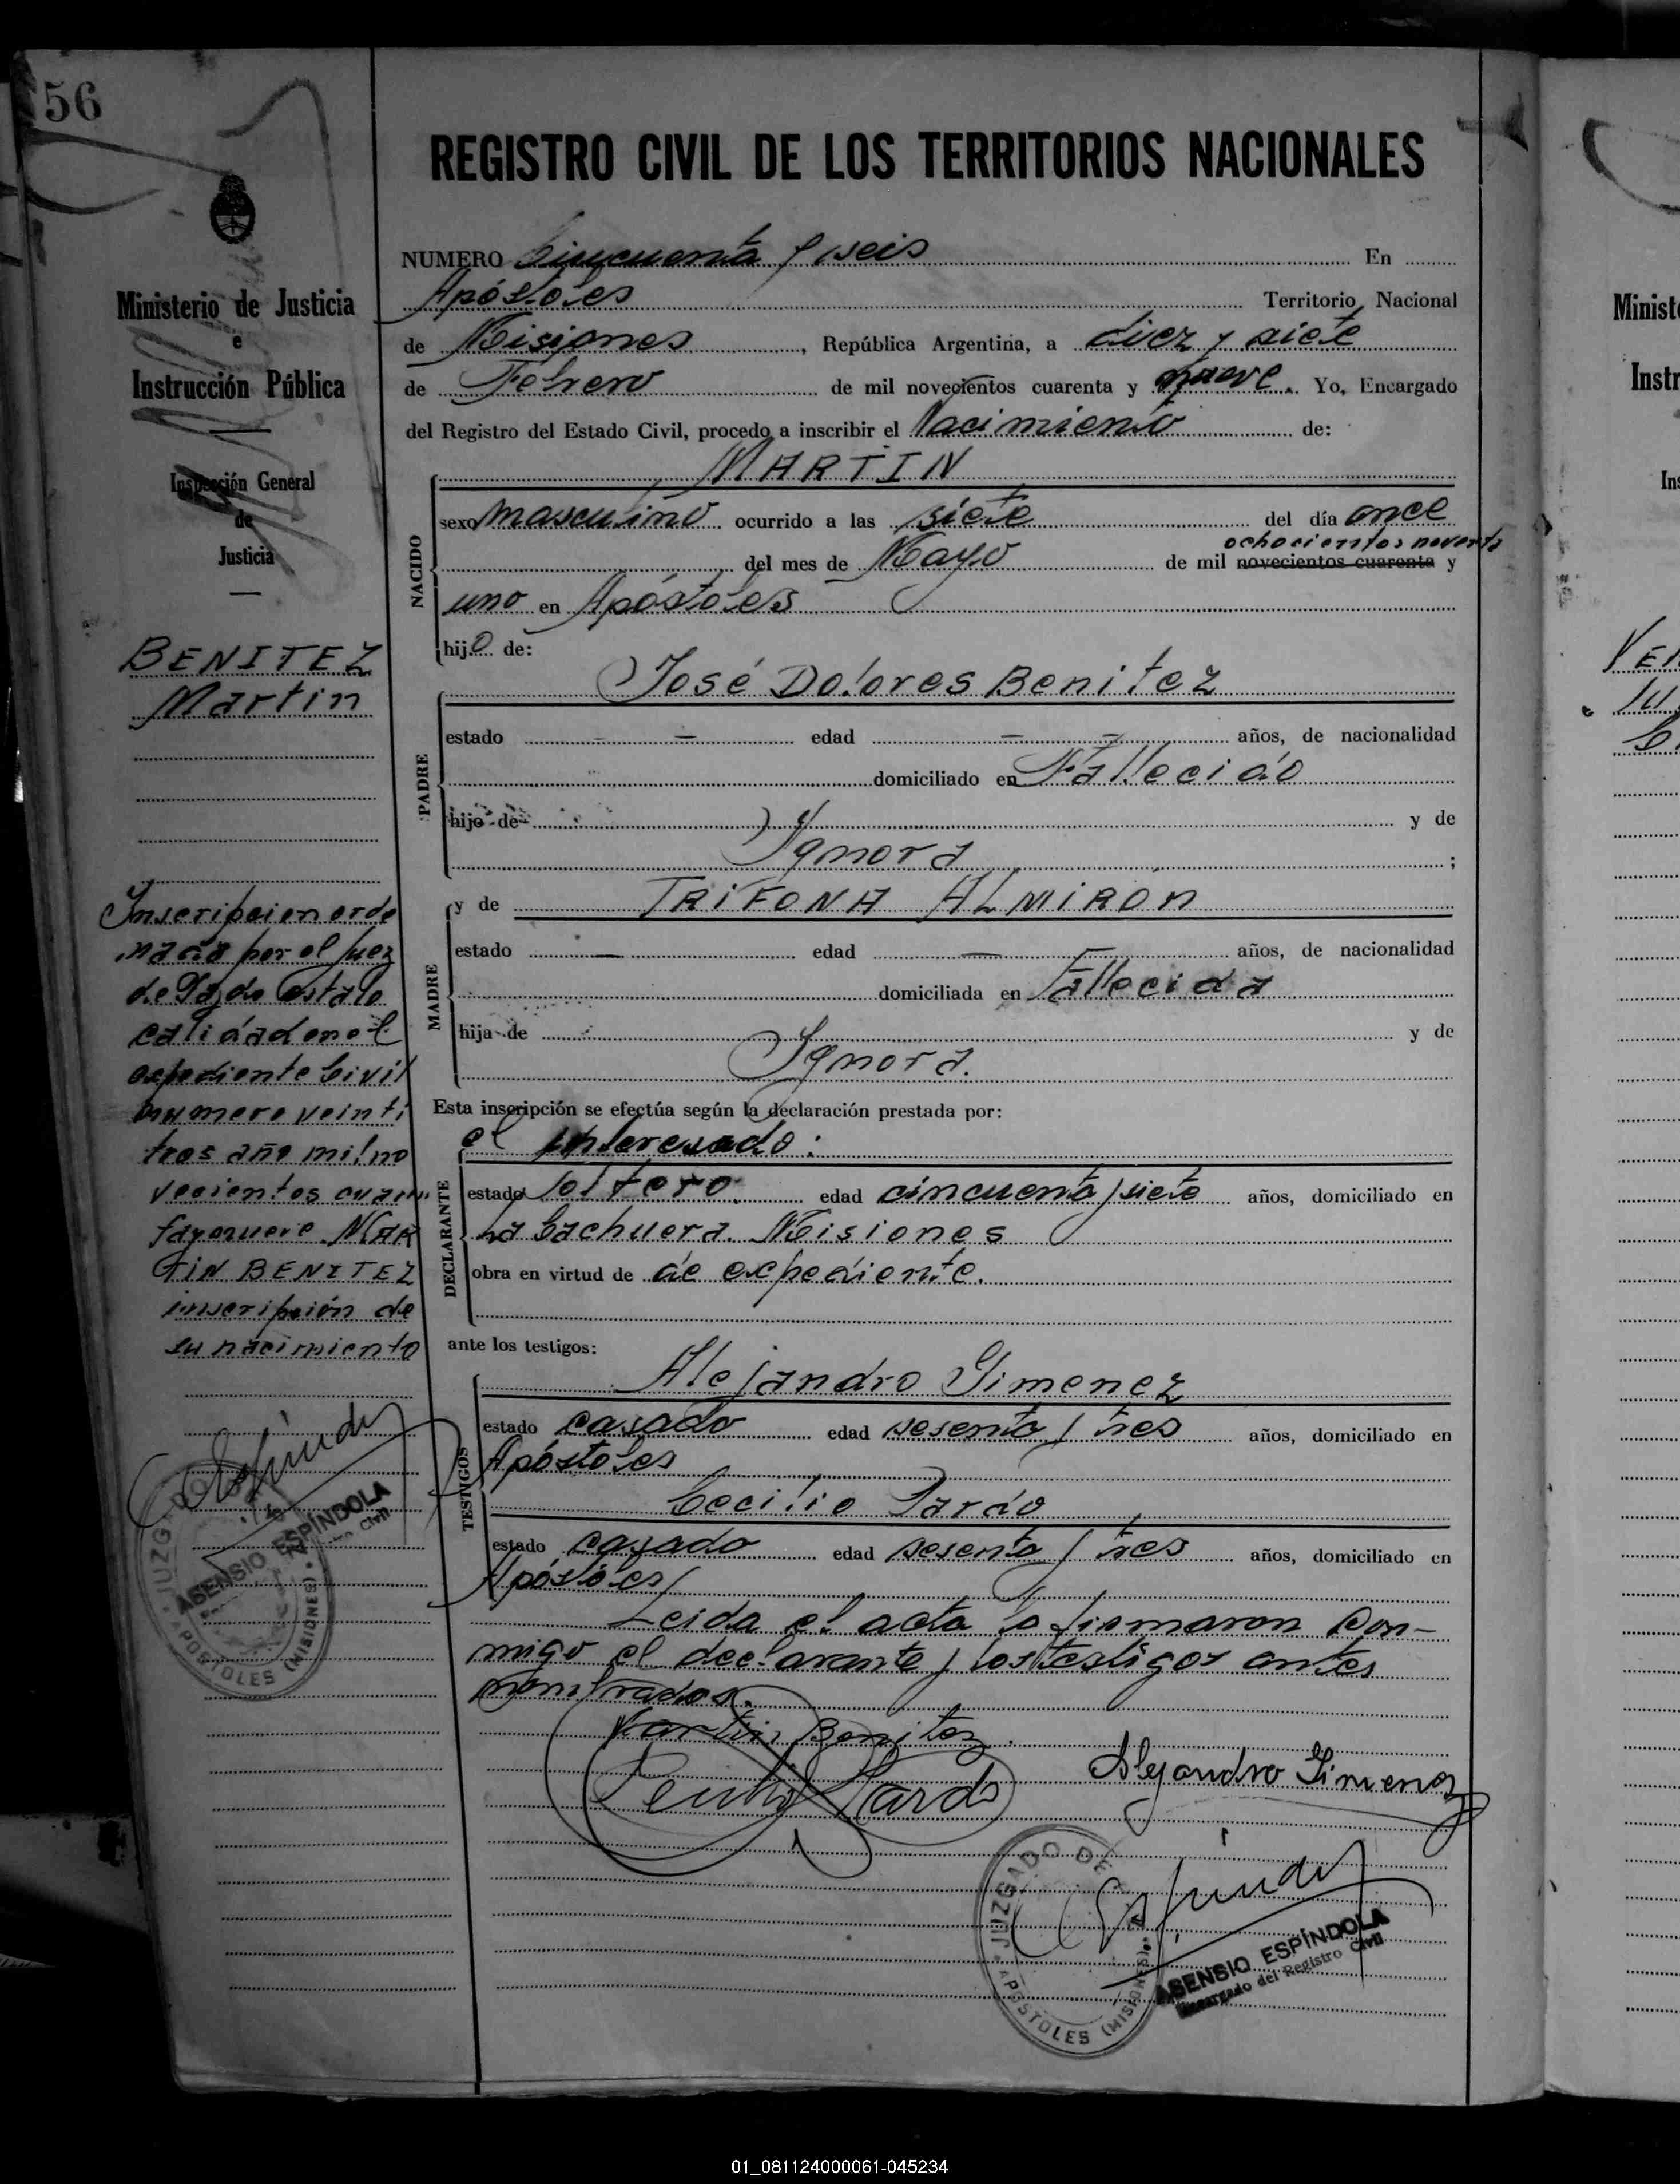 56
REGISTRO CIVIL DE LOS TERRITORIOS NACIONALES
NUMERO Cincuenta y seis En
Apóstoles Territorio Nacional
de Misiones, República Argentina, a diez y siete
de Febrero de mil novecientos cuarenta y nueve. Yo, Encargado
del Registro del Estado Civil, procedo a inscribir el Nacimiento de:
MARTIN
NACIDO
sexo masculino ocurrido a las siete del día once
ochocientos noventa
del mes de Mayo de mil novecientos cuarenta y
uno en Apóstoles
hijo de:
José Dolores Benitez
PADRE
estado — — edad — — años, de nacionalidad
domiciliado en Fallecido
hijo de y de
Ygnora ;
y de TRIFONA ALMIRÓN
MADRE
estado — edad — años, de nacionalidad
domiciliada en Fallecida
hija de y de
Ygnora.
Esta inscripción se efectúa según la declaración prestada por:
el interesado:
DECLARANTE
estado soltero. edad cincuenta y siete años, domiciliado en
La Cachuera. Misiones
obra en virtud de de expediente.
ante los testigos:
Alejandro Gimenez
TESTIGOS
estado casado edad sesenta y tres años, domiciliado en
Apóstoles
Cecilio Pardo
estado casado edad sesenta y tres años, domiciliado en
Apóstoles
Leida el acta la firmaron con-
migo el declarante y los testigos antes
nombrados.
Martin Benitez.
Cecilio Pardo
Alejandro Gimenez
JUZGADO DE
APOSTOLES (MISIONES)
ASENSIO ESPÍNDOLA
Encargado del Registro Civil
Ministerio de Justicia
e
Instrucción Pública
Inspección General
de
Justicia
BENITEZ
Martin
Inscripcion orde
nada por el Juez
de Paz de esta lo
calidad en el
expediente Civil
numero veinti
tres año mil no
vecientos cuaren
ta y nueve. MAR
TIN BENITEZ
inscripción de
su nacimiento
ASENSIO ESPÍNDOLA
APOSTOLES (MISIONES)
01_081124000061-045234